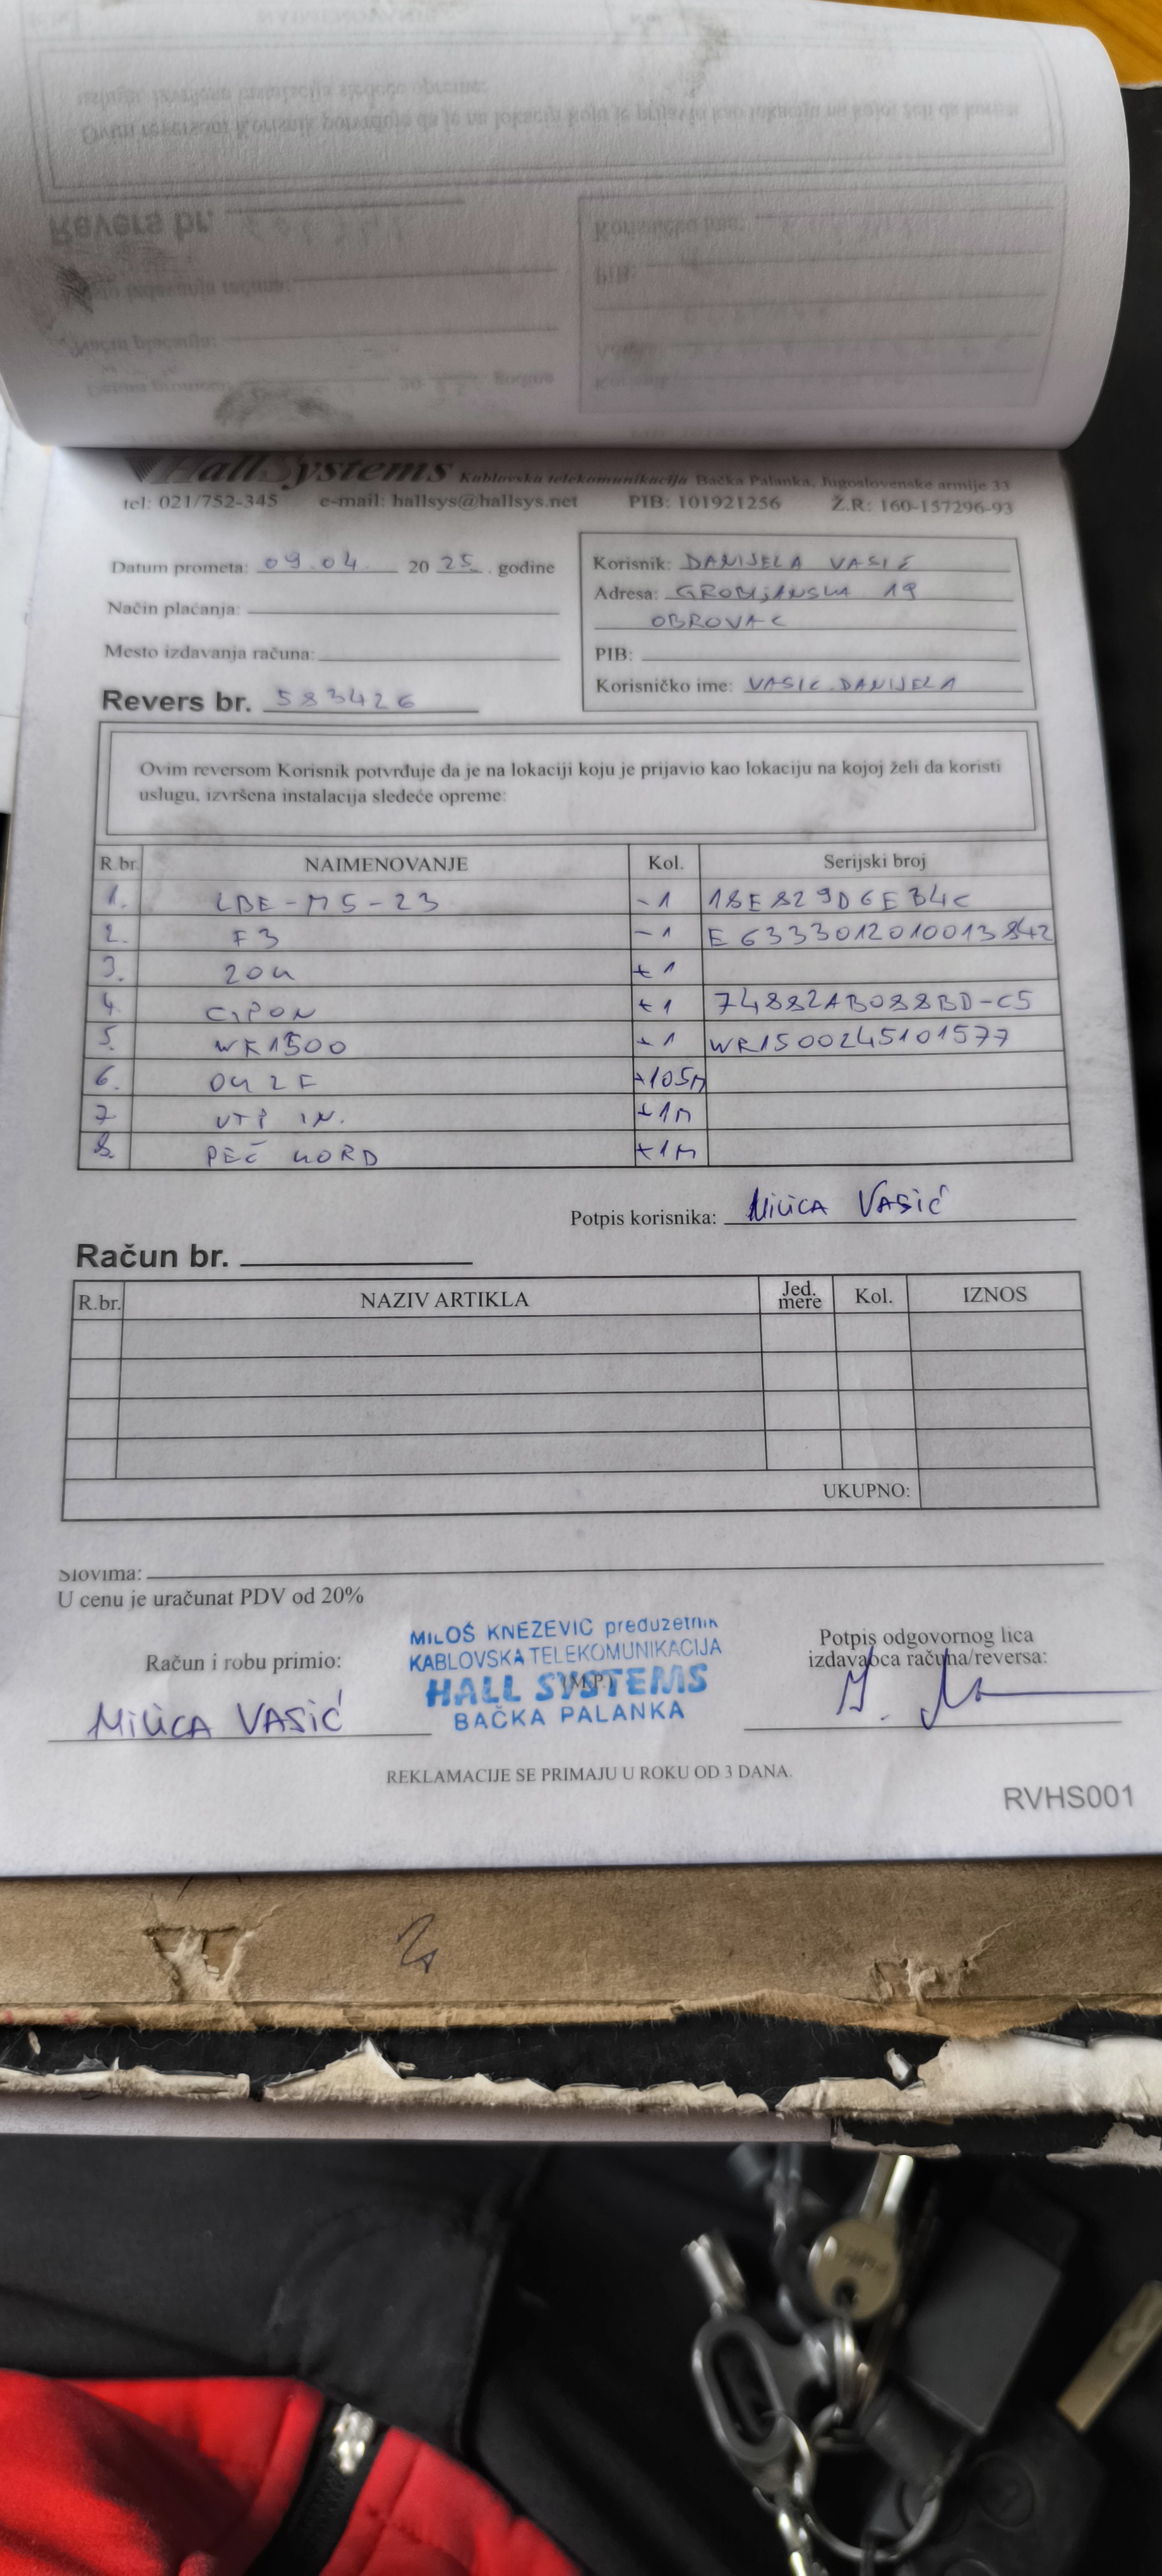 HallSystems Kablovska telekomunikacija Bačka Palanka, Jugoslovenske armije 33
tel: 021/752-345 e-mail: hallsys@hallsys.net PIB: 101921256 Ž.R: 160-157296-93
Datum prometa: 09.04. 20 25. godine
Način plaćanja:
Mesto izdavanja računa:
Revers br. 583426
Korisnik: DANIJELA VASIĆ
Adresa: GROBLJANSKA 19
OBROVAC
PIB:
Korisničko ime: VASIC.DANIJELA
Ovim reversom Korisnik potvrđuje da je na lokaciji koju je prijavio kao lokaciju na kojoj želi da koristi
uslugu, izvršena instalacija sledeće opreme:
R.br. NAIMENOVANJE Kol. Serijski broj
1. LBE-M5-23 -1 18E829D6EB4C
2. F3 -1 E6333012010013842
3. ZOK +1
4. CIPON +1 74882AB088BD-C5
5. WR1500 +1 WR1500245101577
6. OK 2F +105M
7 UTP IN. +1M
8. PEČ KORD +1M
Potpis korisnika: MILICA VASIĆ
Račun br.
R.br. NAZIV ARTIKLA Jed. mere Kol. IZNOS
UKUPNO:
Slovima:
U cenu je uračunat PDV od 20%
Račun i robu primio:
MILICA VASIĆ
MILOŠ KNEZEVIC preduzetnik
KABLOVSKA TELEKOMUNIKACIJA
HALL SYSTEMS
(M.P.)
BAČKA PALANKA
Potpis odgovornog lica
izdavaoca računa/reversa:
REKLAMACIJE SE PRIMAJU U ROKU OD 3 DANA.
RVHS001